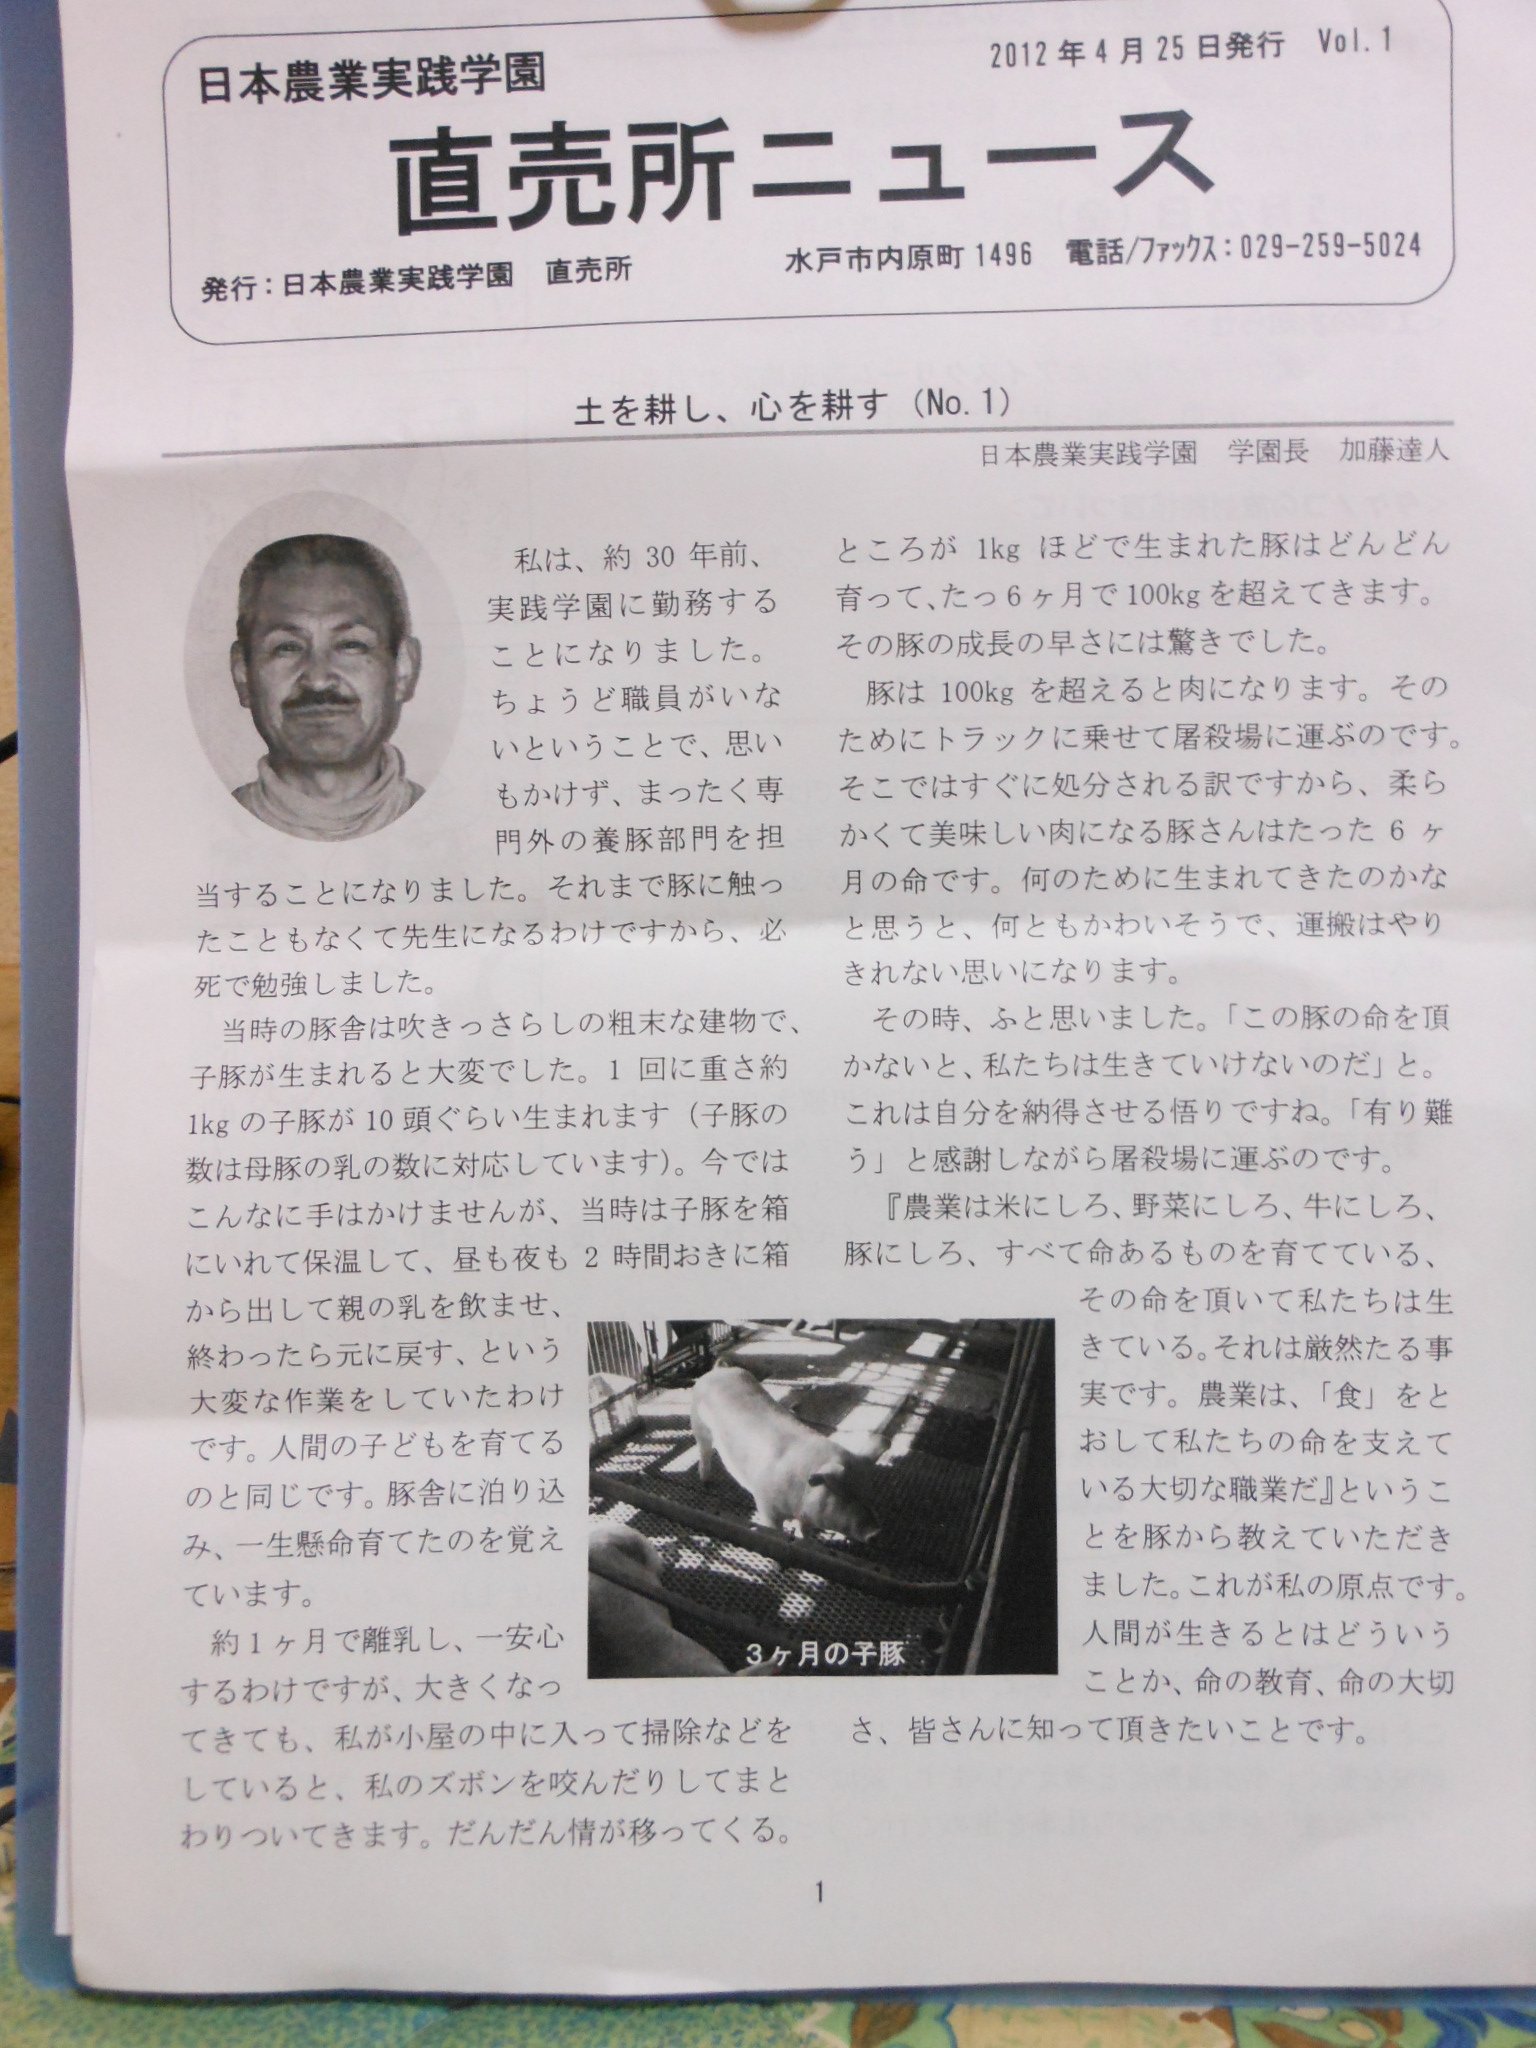 日本農業実践学園
2012年4月25日発行　Vol.1
直売所ニュース
発行：日本農業実践学園　直売所
水戸市内原町1496　電話/ファックス：029-259-5024
土を耕し、心を耕す（No.1）
日本農業実践学園　学園長　加藤達人
私は、約30年前、
実践学園に勤務する
ことになりました。
ちょうど職員がいな
いということで、思い
もかけず、まったく専
門外の養豚部門を担
当することになりました。それまで豚に触っ
たこともなくて先生になるわけですから、必
死で勉強しました。
当時の豚舎は吹きっさらしの粗末な建物で、
子豚が生まれると大変でした。1回に重さ約
1kgの子豚が10頭ぐらい生まれます（子豚の
数は母豚の乳の数に対応しています）。今では
こんなに手はかけませんが、当時は子豚を箱
にいれて保温して、昼も夜も2時間おきに箱
から出して親の乳を飲ませ、
終わったら元に戻す、という
大変な作業をしていたわけ
です。人間の子どもを育てる
のと同じです。豚舎に泊り込
み、一生懸命育てたのを覚え
ています。
約1ヶ月で離乳し、一安心
するわけですが、大きくなっ
てきても、私が小屋の中に入って掃除などを
していると、私のズボンを咬んだりしてまと
わりついてきます。だんだん情が移ってくる。
ところが1kgほどで生まれた豚はどんどん
育って、たっ6ヶ月で100kgを超えてきます。
その豚の成長の早さには驚きでした。
豚は100kgを超えると肉になります。その
ためにトラックに乗せて屠殺場に運ぶのです。
そこではすぐに処分される訳ですから、柔ら
かくて美味しい肉になる豚さんはたった6ヶ
月の命です。何のために生まれてきたのかな
と思うと、何ともかわいそうで、運搬はやり
きれない思いになります。
その時、ふと思いました。「この豚の命を頂
かないと、私たちは生きていけないのだ」と。
これは自分を納得させる悟りですね。「有り難
う」と感謝しながら屠殺場に運ぶのです。
『農業は米にしろ、野菜にしろ、牛にしろ、
豚にしろ、すべて命あるものを育てている、
その命を頂いて私たちは生
きている。それは厳然たる事
実です。農業は、「食」をと
おして私たちの命を支えて
いる大切な職業だ』というこ
とを豚から教えていただき
ました。これが私の原点です。
人間が生きるとはどういう
ことか、命の教育、命の大切
さ、皆さんに知って頂きたいことです。
3ヶ月の子豚
1